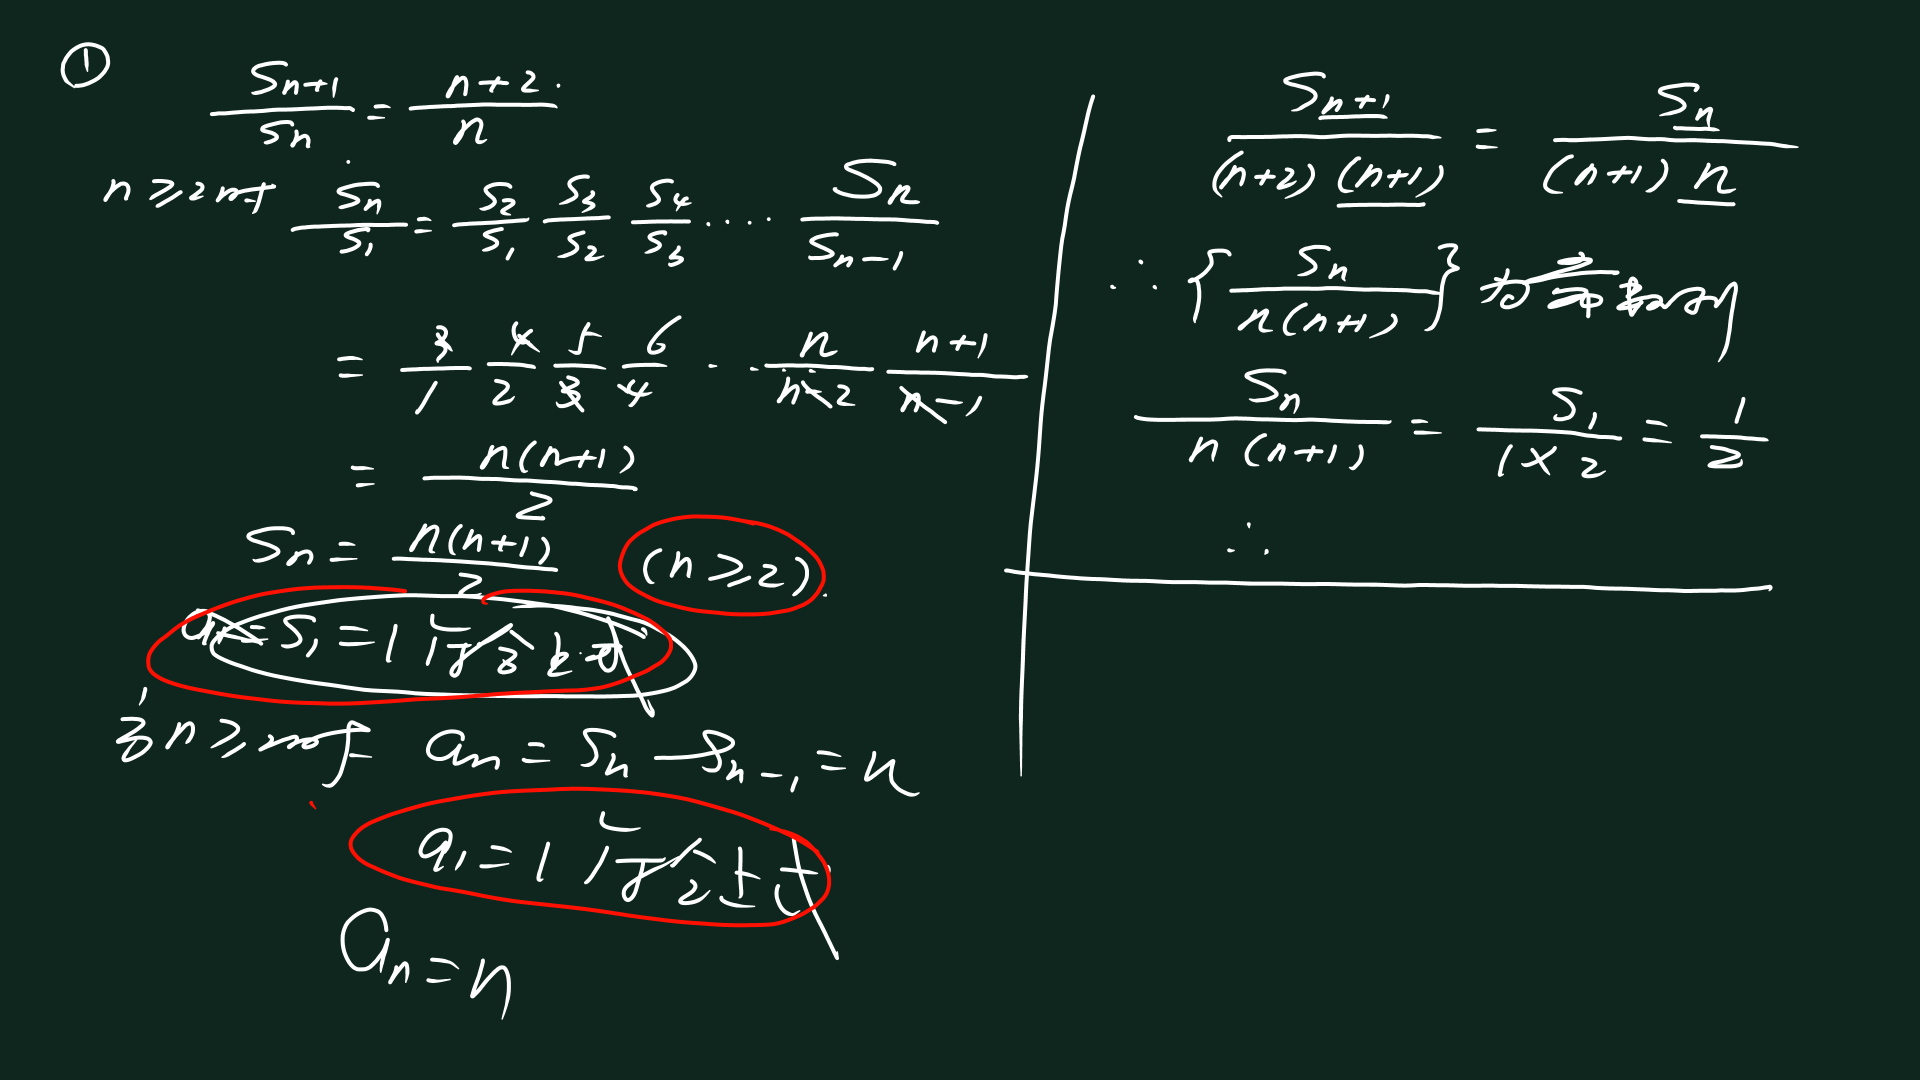 ①
\frac{S_{n+1}}{S_n} = \frac{n+2}{n}
n≥2时 \frac{S_n}{S_1} = \frac{S_2}{S_1} \frac{S_3}{S_2} \frac{S_4}{S_3} .... \frac{S_n}{S_{n-1}}
= \frac{3}{1} \frac{4}{2} \frac{5}{3} \frac{6}{4} ... \frac{n}{n-2} \frac{n+1}{n-1}
= \frac{n(n+1)}{2}
S_n = \frac{n(n+1)}{2} (n≥2).
a_1 = S_1 = 1 满足上式
当n≥2时 a_n = S_n - S_{n-1} = n
a_1 = 1 满足上式
a_n = n
\frac{S_{n+1}}{(n+2)(n+1)} = \frac{S_n}{(n+1)n}
∴ {\frac{S_n}{n(n+1)}} 为常数列
\frac{S_n}{n(n+1)} = \frac{S_1}{1×2} = \frac{1}{2}
∴